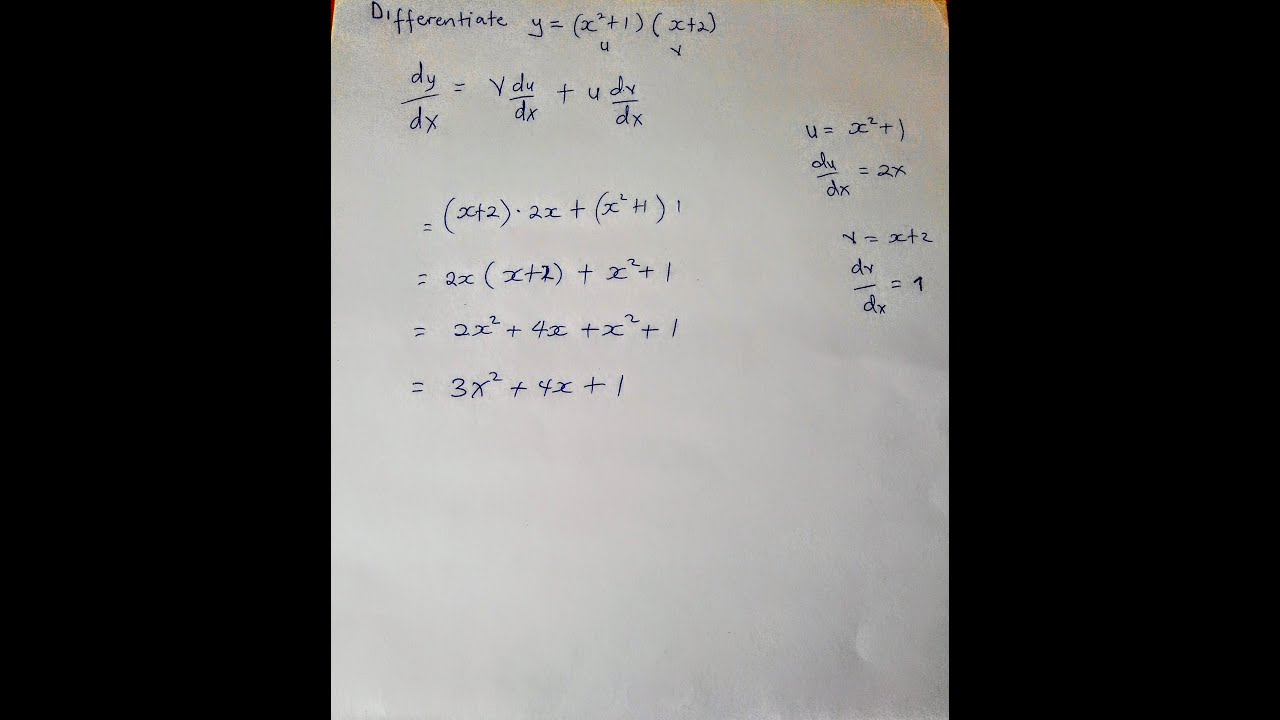 Differentiate y = (x²+1) (x+2)
u v
dy/dx = v du/dx + u dv/dx
u = x²+1
du/dx = 2x
= (x+2) · 2x + (x²+1) 1
v = x+2
= 2x (x+2) + x²+1
dv/dx = 1
= 2x² + 4x + x² + 1
= 3x² + 4x + 1